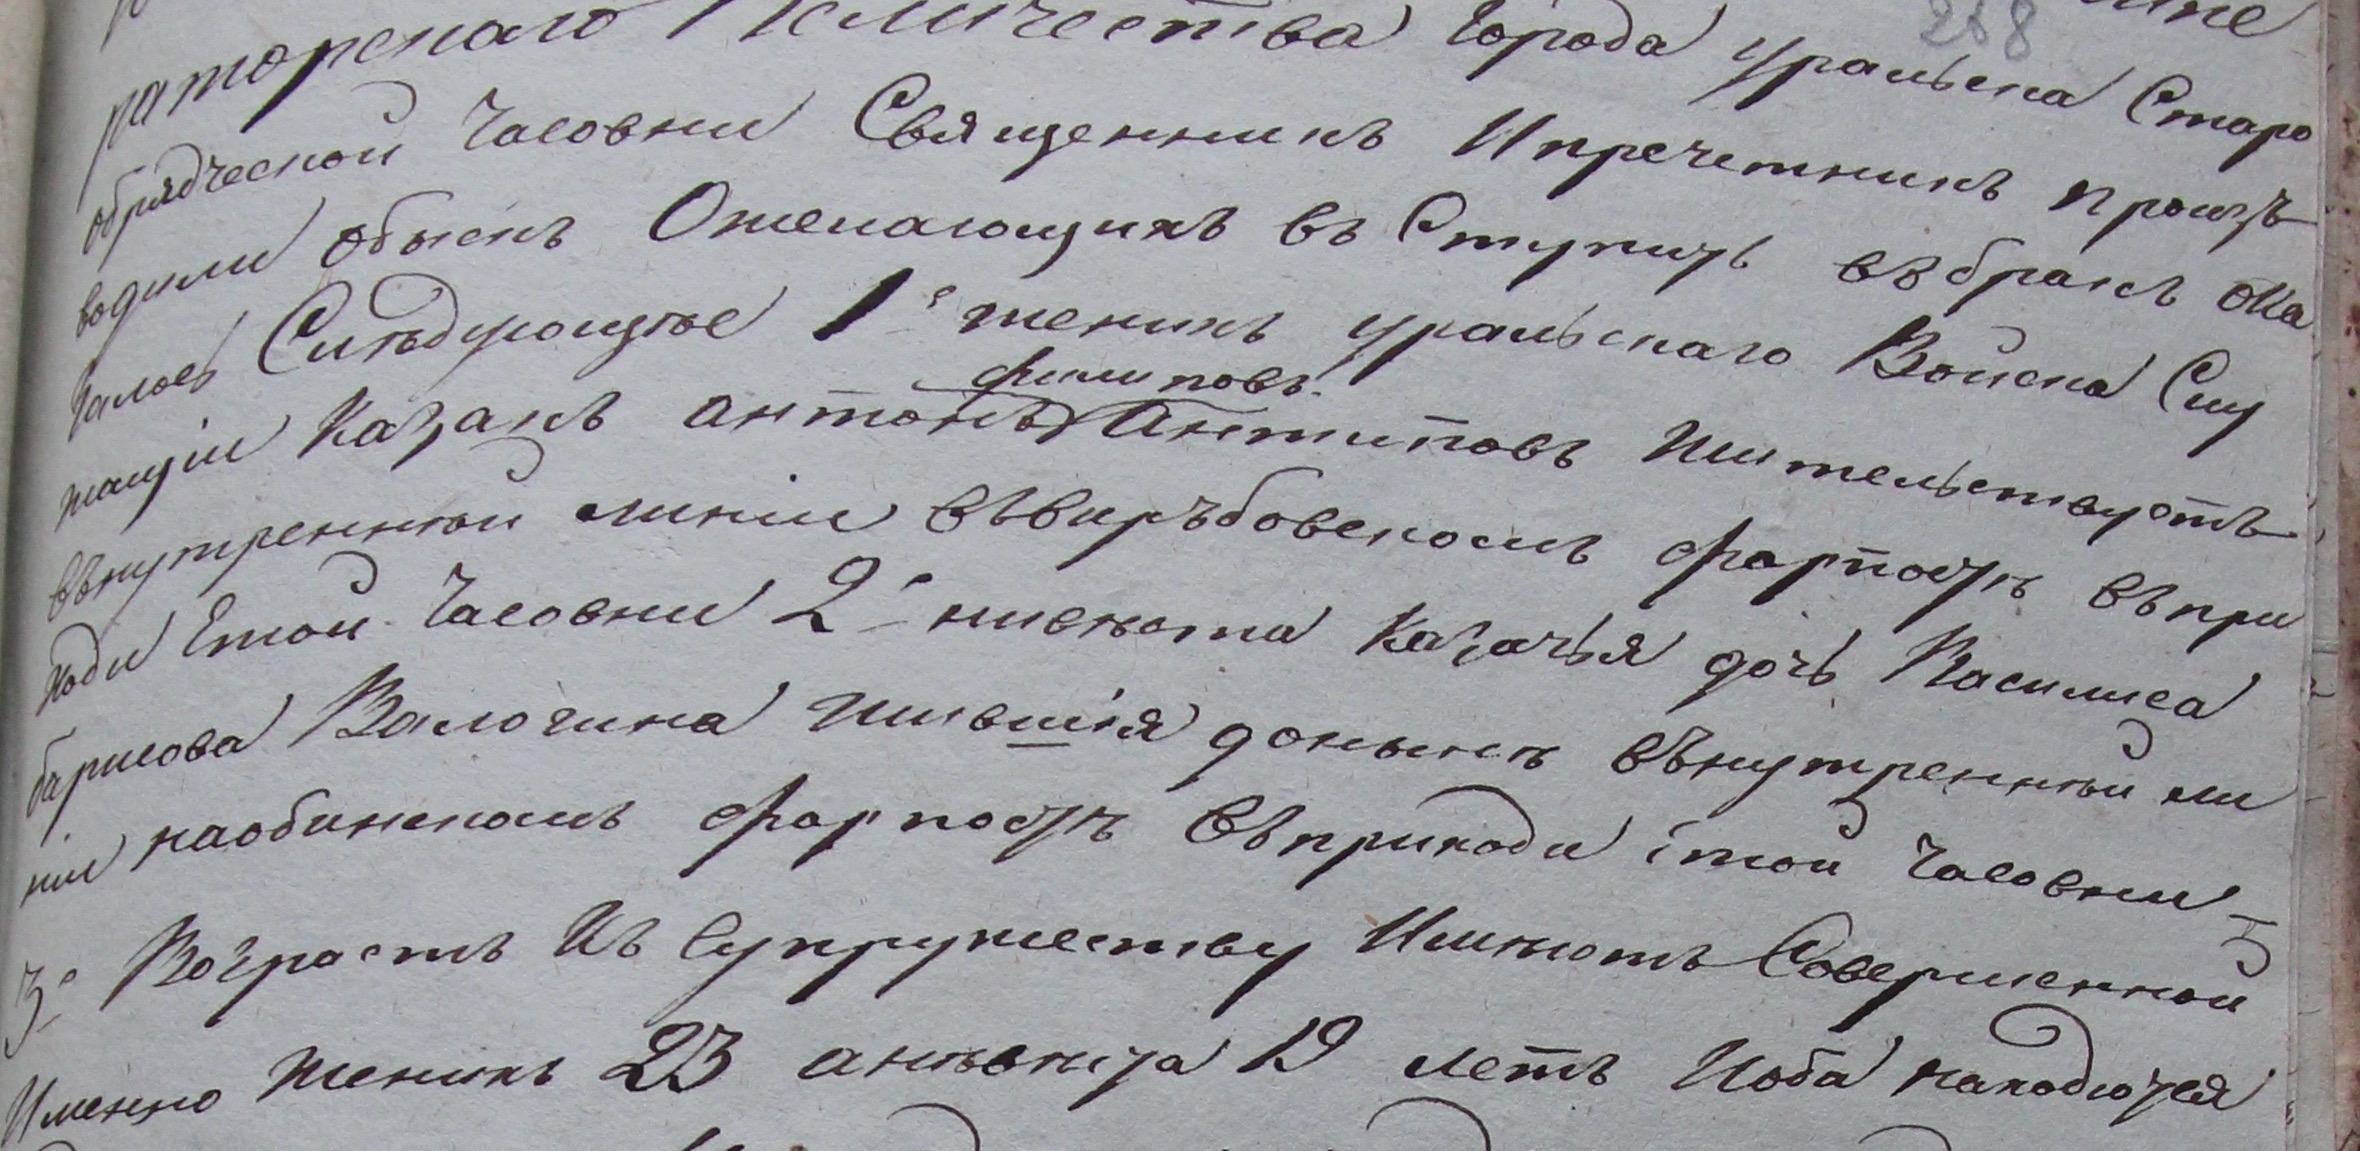 раторскаго Величества города уральска Старо
268
обрядческой Часовни Священникъ Ипречетникъ произъ
водили обыскъ Ожелающихъ въ Ступить въбракъ ока
залось Слѣдующее 1е женихъ уральскаго Войска Слу
филиповъ
жащіи Казакъ антонъ Антиповъ Жительствуетъ
вънутренной линіи въвиръбовскомъ фарпостѣ въпри
ходи Етой Часовни 2е нивѣста Казачья дочь Василиса
барисова Валогина жившія донынѣ вънутренной ли
ніи наобинскомъ фарпостѣ въприходи iтой часовни
3е Возрастъ Къ Супружеству Имѣютъ Совершенной
Именно женихъ 23 анѣвѣста 19 летъ Иоба находются